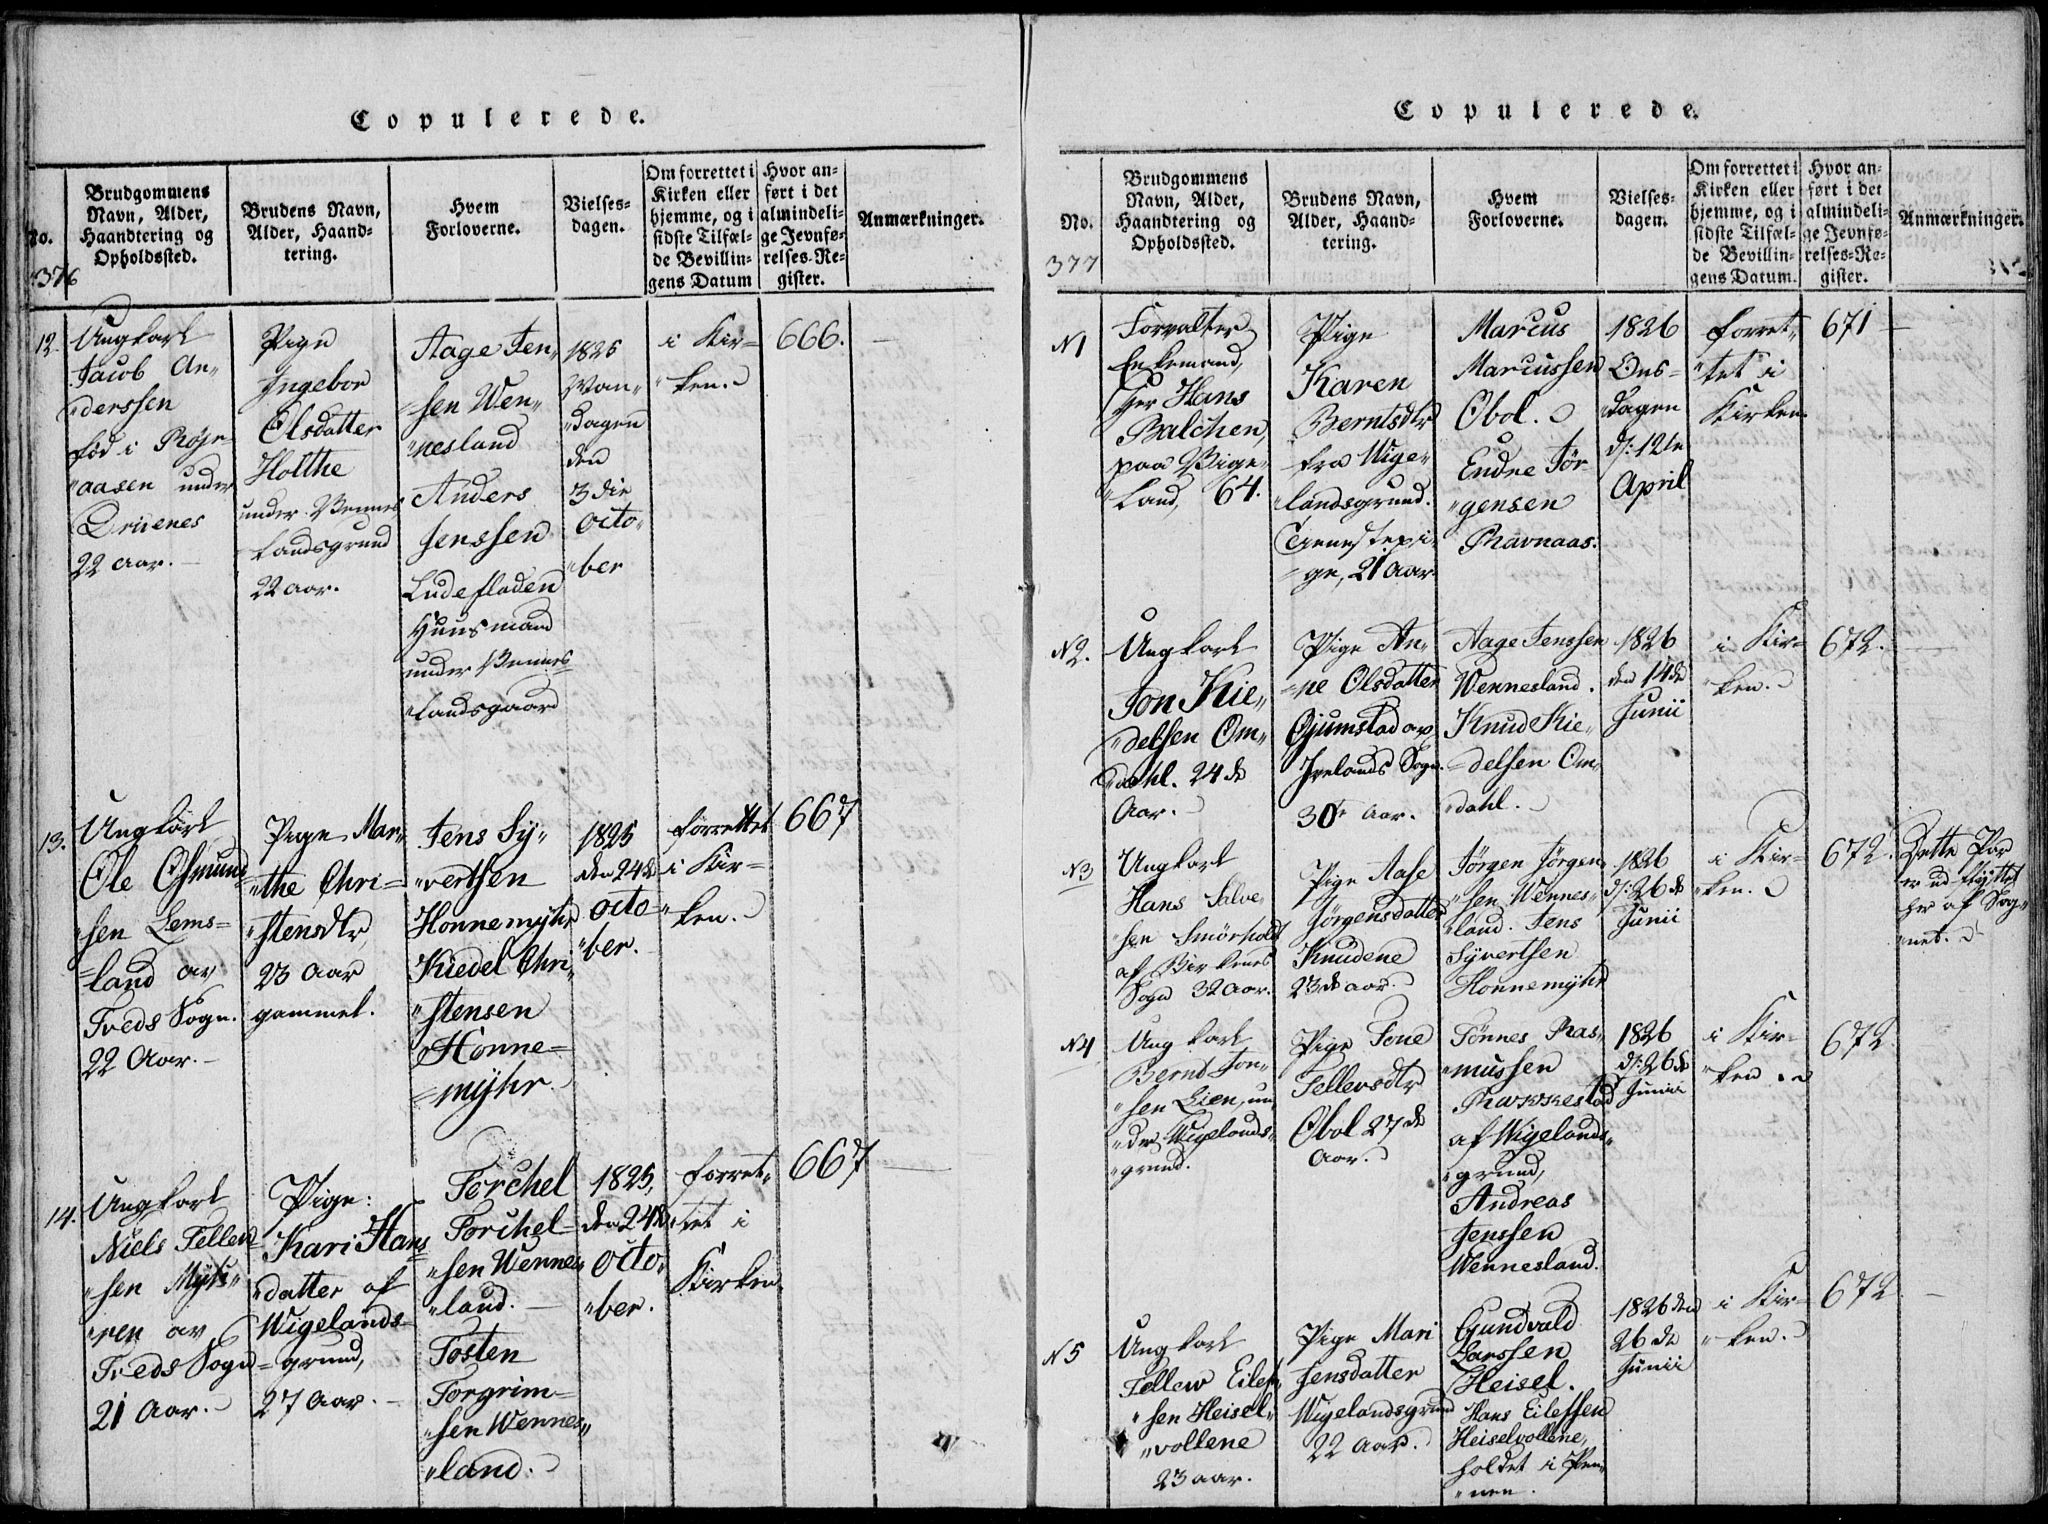 Copulerede.
No.
376
Brudgommens
Navn, Alder,
Haandtering og
Opholdssted.
Brudens Navn,
Alder, Haand-
tering.
Hvem
Forloverne.
Vielses-
dagen.
Om forrettet i
Kirken eller
hjemme, og i
sidste Tilfæl-
de Bevillin-
gens Datum
Hvor an-
ført i det
almindeli-
ge Jevnfø-
relses-Re-
gister.
Anmærkninger.
12.
Ungkarl
Jacob An-
derssen
fød i Røjn-
aasen under
Drivenes
22 aar.
Pige
Ingebor
Olsdatter
Holthe
under Vennes
landsgrund
22 aar.
Aage Jen-
sen Wen-
nesland
Anders
Jenssen
Ludefladen
Huusmand
under Vennes
landsgaard
1825
Man-
dagen
den
3 die
octo-
ber
i Kir-
ken.
666.
13.
Ungkarl
Ole Osmund
sen Lems-
land av
Treds Sogn.
22 Aar.
Pige Mar-
the Chri-
stensdtr
23 Aar
gammel.
Jens Sy-
vertsen
Honnemyhr
Kiedel Chri-
stensen
Honne-
myhr.
1825
den 24de
octo-
ber.
forrettet
i Kir-
ken.
667
14.
Ungkarl
Niels Tellev
sen Myh-
ren av
Treds Sogn
21 Aar.
Pige:
Kari Hans
datter af
Wigelands-
grund,
27 Aar.
Torchel
Torchel-
sen Wennes
land.
Tosten
Torgrim-
sen Wennes-
land.
1825,
den 24de
octo-
ber.
forret-
tet i
Kirken.
667
Copulerede.
No.
377
Brudgommens
Navn, Alder,
Haandtering og
Opholdssted.
Brudens Navn,
Alder, Haand-
tering.
Hvem
Forloverne.
Vielses-
dagen.
Om forrettet i
Kirken eller
hjemme, og i
sidste Tilfæl-
de Bevillin-
gens Datum.
Hvor an-
ført i det
almindeli-
ge Jevnfø-
relses-Re-
gister.
Anmærkninger.
N1
Forvalter
Enkemand,
Hr Hans
Balchen,
paa Vige-
land, 64.
Pige
Karen
Berntsdtr
fra Wige-
landsgrund.
Tjenestepi-
ge, 21 Aar.
Marcus
Marcussen
Obol.
Endre Jør-
gensen
Ravnaas.
1826
Ons-
dagen
d: 12te
April
forret-
tet i
Kirken.
671
N2.
Ungkarl
Jon Kie-
delsen Om-
dahl. 24de
Aar.
Pige An-
ne Olsdatter
Gjumstad av
Ivelands Sogn.
30te Aar.
Aage Jenssen
Wennesland.
Knud Kie-
delsen Om-
dahl.
1826
den 14de
Junii
i Kir-
ken.
672.
N3
Ungkarl
Hans Salve-
sen Smörholdt
af Birkenes
Sogn 32 Aar.
Pige Aase
Jørgensdatter
Knudene
23de aar.
Jørgen Jørgen-
sen Wennes-
land. Jens
Syvertsen
Honnemyhr
1826
d: 26de
Junii
i Kir-
ken.
672.
Dette Par
er udflyttet
her af Sog-
net.
N4
Ungkarl
Bernt Jon-
sen Lien, un-
der Wigelands-
grund.
Pige Tone
Tellevsdtr
Obol 27de
Aar.
Tønnes Ras-
mussen
Rakkestad
af Wigelands-
grund,
Andreas
Jenssen
Wennesland.
1826
d: 26de
Junii
i Kir-
ken.
672.
N5
Ungkarl
Tellew Eilef-
sen Heisel-
vollene
23 aar.
Pige Mari
Jensdatter
Wigelandsgrund
22 Aar.
Gundvald
Larssen
Heisel.
Hans Eilefsen
Heiselvollene,
holdet i
1826 den
26de
Junii
i Kir-
ken.
672